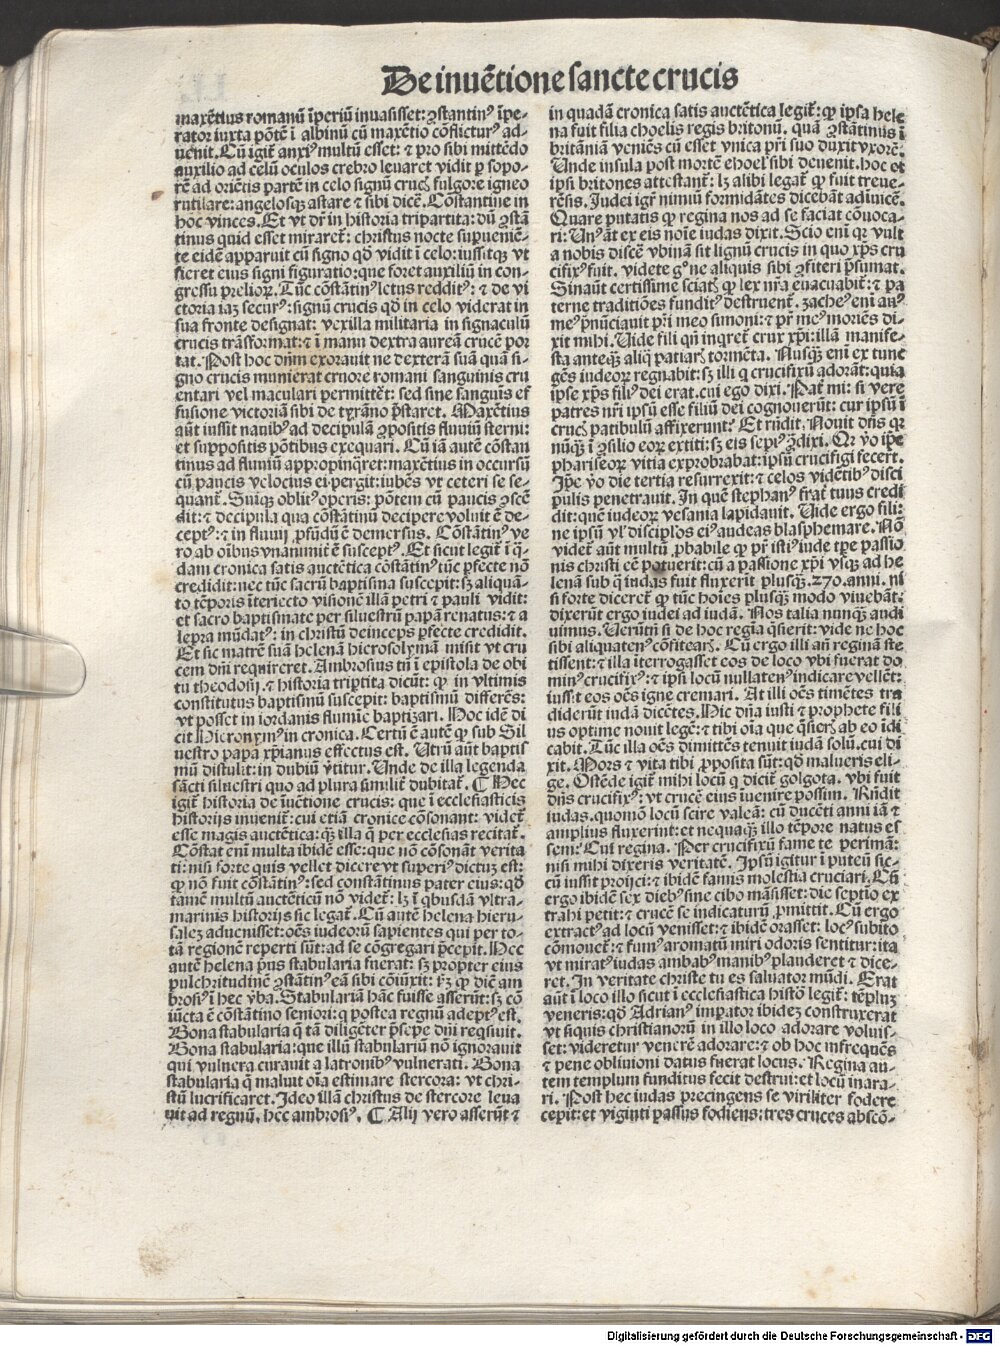 De inuētione sancte crucis
maxētius romanū īperiū inuasisset: ꝯstantinꝰ īpe-
rator iuxta pōtē ī albinū cū maxētio cōflicturꝰ ad-
uenit. Cū igit̄ anxiꝰ multū esset: ⁊ pro sibi mittēdo
auxilio ad celū oculos crebro leuaret vidit ꝑ sopo-
rē ad oriētis partē in celo signū crucꝭ fulgore igneo
rutilare: angelosqꝫ astare ⁊ sibi dicē. Cōstantine in
hoc vinces. Et vt dr̄ in historia tripartita: dū ꝯstā
tinus quid esset miraret̄: christus nocte supueniē-
te eidē apparuit cū signo qd̄ vidit ī celo: iussitqꝫ vt
fieret eius signi figuratio: que foret auxiliū in con-
gressu prelioꝝ. Tūc cōstātinꝰ letus redditꝰ: ⁊ de vi
ctoria iaꝫ securꝰ: signū crucis qd̄ in celo viderat in
sua fronte designat: vexilla militaria in signaculū
crucis trāsformat: ⁊ ī manu dextra aureā crucē por
tat. Post hoc dn̄m exorauit ne dexterā suā quā si-
gno crucis munierat cruore romani sanguinis cru
entari vel maculari permittēt: sed sine sanguīs ef
fusione victoriā sibi de tyrāno p̄staret. Maxētius
aūt iussit nauibꝰ ad decipulā ꝯpositis fluuiū sterni:
et suppositis pōtibus exequari. Cū iā autē cōstan
tinus ad fluuiū appropinq̄ret: maxētius in occursū
cū paucis velocius ei pergit: iubēs vt ceteri se se-
quant̄. Suiqꝫ oblitꝰ operis: pōtem cū paucis ꝯscē
dit: ⁊ decipula qua cōstātinū decipere voluit ē de-
ceptꝰ: ⁊ in fluuij ꝓfūdū ē demersus. Cōstātinꝰ ve
ro ab oībus vnanimit̄ ē susceptꝰ. Et sicut legit̄ ī q̄-
dam cronica satis auctētica cōstātinꝰ tūc ꝑfecte nō
credidit: nec tūc sacrū baptisma suscepit: sꝫ aliquā-
to tēporis īteriecto visionē illā petri ⁊ pauli vidit:
et sacro baptismate per siluestrū papā renatus: ⁊ a
lepra mūdatꝰ: in christū deinceps ꝑfecte credidit.
Et sic matrē suā helenā hierosolymā misit vt cru
cem dn̄i requireret. Ambrosius tn̄ ī epistola de obi
tu theodosij ⁊ historia trip̄tita dicūt: ꝙ in vltimis
constitutus baptismū suscepit: baptismū differēs:
vt posset in iordanis flumīe baptizari. Hoc idē di
cit Hieronymꝰ in cronica. Certū ē autē ꝙ sub Sil
uestro papa xp̄ianus effectus est. Utrū aūt baptis
mū distulit: in dubiū v̄titur. Unde de illa legenda
sācti siluestri quo ad plura similit̄ dubitat̄. ¶ Hec
igit̄ historia de īuētione crucis: que ī ecclesiasticis
historijs inuenit̄: cui etiā cronice cōsonant: videt̄
esse magis auctētica: qꝫ illa q̄ per ecclesias recitat̄.
Cōstat enī multa ibidē esse: que nō cōsonāt verita
ti: nisi forte quis vellet dicere vt superiꝰ dictuꝫ est:
ꝙ nō fuit cōstātinꝰ: sed constātinus pater eius: qd̄
tamē multū auctēticū nō videt̄: lꝫ ī q̄busdā vltra-
marinis historijs sic legat̄. Cū autē helena hieru-
saleꝫ aduenisset: oēs iudeorū sapientes qui per to-
tā regionē reperti sūt: ad se cōgregari p̄cepit. Hec
autē helena p̄us stabularia fuerat: sꝫ propter eius
pulchritudinē ꝯstātinꝰ eā sibi cōiūxit: iuxta qd̄ am
brosiꝰ ī hec v̄ba. Stabulariā hāc fuisse asserūt: sꝫ cō
iūcta ē cōstātino seniori: q̄ postea regnū adeptꝰ est.
Bona stabularia q̄ tā diligēter p̄sepe dn̄i reqsiuit.
Bona stabularia: que illū stabulariū nō ignorauit
qui vulnera curauit a latronibꝰ vulnerati. Bona
stabularia q̄ maluit oīa estimare stercora: vt chri-
stū lucrificaret. Ideo illā christus de stercore leua
uit ad regnū. hēc ambrosiꝰ. ¶ Alij vero asserūt ⁊
in quadā cronica satis auctētica legit̄: ꝙ ipsa hele
na fuit filia choelis regis britonū. quā ꝯstātinus ī
britāniā veniēs cū esset vnica pr̄i suo duxit vxorē.
Unde insula post mortē choel̕ sibi deuenit. hoc et
ipsi britones attestant̄: lꝫ alibi legat̄ ꝙ fuit treue-
rēsis. Iudei igr̄ nimiū formidātes dicebāt adinuicē.
Quare putatis ꝙ regina nos ad se faciat cōuoca-
ri: Unꝰ āt ex eis noīe iudas dixit. Scio enī qꝛ vult
a nobis discē vbinā sit lignū crucis in quo xp̄s cru
cifixꝰ fuit. videte gͦ ne aliquis sibi ꝯfiteri p̄sumat.
Sinaūt certissime sciatꝭ ꝙ lex nr̄a euacuabit̄: ⁊ pa
terne traditiōes funditꝰ destruent̄. zacheꝰ enī auꝰ
meꝰ p̄nūciauit pr̄i meo simoni: ⁊ pr̄ meꝰ moriēs di-
xit mihi. Uide fili qn̄ inqret̄ crux xp̄i: illā manife-
sta anteqꝫ aliq̄ patiarꝭ tormēta. Nusqꝫ enī ex tunc
gēs iudeoꝝ regnabit: sꝫ illi q crucifixū adorāt: quia
ipse xp̄s filiꝰ dei erat. cui ego dixi. Pat̄ mi: si vere
patres nr̄i ipsū esse filiū dei cognouerūt: cur ipsū ī
crucꝭ patibulū affixerunt? Et rn̄dit. Nouit dn̄s qꝛ
nūqꝫ ī ꝯsilio eoꝝ extiti: sꝫ eis sepiꝰ ꝯ̄dixi. Qꝛ v̄o ip̄e
phariseoꝝ vitia exprobrabat: ipsū crucifigi fecert̄.
Ip̄e v̄o die tertia resurrexit: ⁊ celos vidētibꝰ disci
pulis penetrauit. In quē stephanꝰ frat̄ tuus credi
dit: quē iudeoꝝ vesania lapidauit. Uide ergo fili:
ne ipsū vl̕ disciplos eiꝰ audeas blasphemare. Nō
videt̄ aūt multū ꝓbabile ꝙ pr̄ istiꝰ iude tp̄e passio
nis christi eē potuerit: cū a passione xp̄i vsqꝫ ad he
lenā sub q̄ iudas fuit fluxerīt plusqꝫ .270. anni. ni
si forte diceret̄ ꝙ tūc hoīes plusqꝫ modo viuebāt:
dixerūt ergo iudei ad iudā. Nos talia nunqꝫ audi
uimus. Uerūtn̄ si de hoc regīa q̄sierit: vide ne hoc
sibi aliquatenꝰ cōfitearꝭ. Cū ergo illi an̄ reginā ste
tissent: ⁊ illa īterrogasset eos de loco vbi fuerat do
minꝰ crucifixꝰ: ⁊ ipsi locū nullatenꝰ indicare vellēt:
iussit eos oēs igne cremari. At illi oēs timētes tra
diderūt iudā dicētes. Hic dn̄a iusti ⁊ prophete fili
us optime nouit legē: ⁊ tibi oīa que q̄sierꝭ ab eo īdi
cabit. Tūc illa oēs dimittēs tenuit iudā solū. cui di
xit. Mors ⁊ vita tibi ꝓposita sūt: qd̄ malueris eli-
ge. Ostēde igit̄ mihi locū q dicit̄ golgota. vbi fuit
dn̄s crucifixꝰ: vt crucē eius īuenire possim. Rn̄dit
iudas. quomō locū scire valeā: cū ducēti anni iā ⁊
amplius fluxerint: et nequaqꝫ illo tēpore natus es
sem? Cui regina. Per crucifixū fame te perimā:
nisi mihi dixeris veritatē. Ipsū igitur ī puteū sic-
cū iussit proijci: ⁊ ibidē famis molestia cruciari. Cū
ergo ibidē sex diebꝰ sine cibo māsisset: die septīo ex
trahi petit: ⁊ crucē se indicaturū ꝓmittit. Cū ergo
extractꝰ ad locū venisset: ⁊ ibidē orasset: locꝰ subito
cōmouet̄: ⁊ fumꝰ aromatū miri odoris sentitur: ita
vt miratꝰ iudas ambabꝰ manibꝰ plauderet ⁊ dice-
ret. In veritate christe tu es saluator mūdi. Erat
aūt ī loco illo sicut ī ecclesiastica histō legit̄: tēpluꝫ
veneris: qd̄ Adrianꝰ imꝑator ibideꝫ construxerat
vt siquis christianorū in illo loco adorare voluis-
set: videretur venerē adorare: ⁊ ob hoc infrequēs
⁊ pene obliuioni datus fuerat locus. Regina au-
tem templum funditus fecit destrui: et locū inara-
ri. Post hec iudas precingens se viriliter fodere
cepit: et viginti passus fodiens: tres cruces abscō-
Digitalisierung gefördert durch die Deutsche Forschungsgemeinschaft - DFG